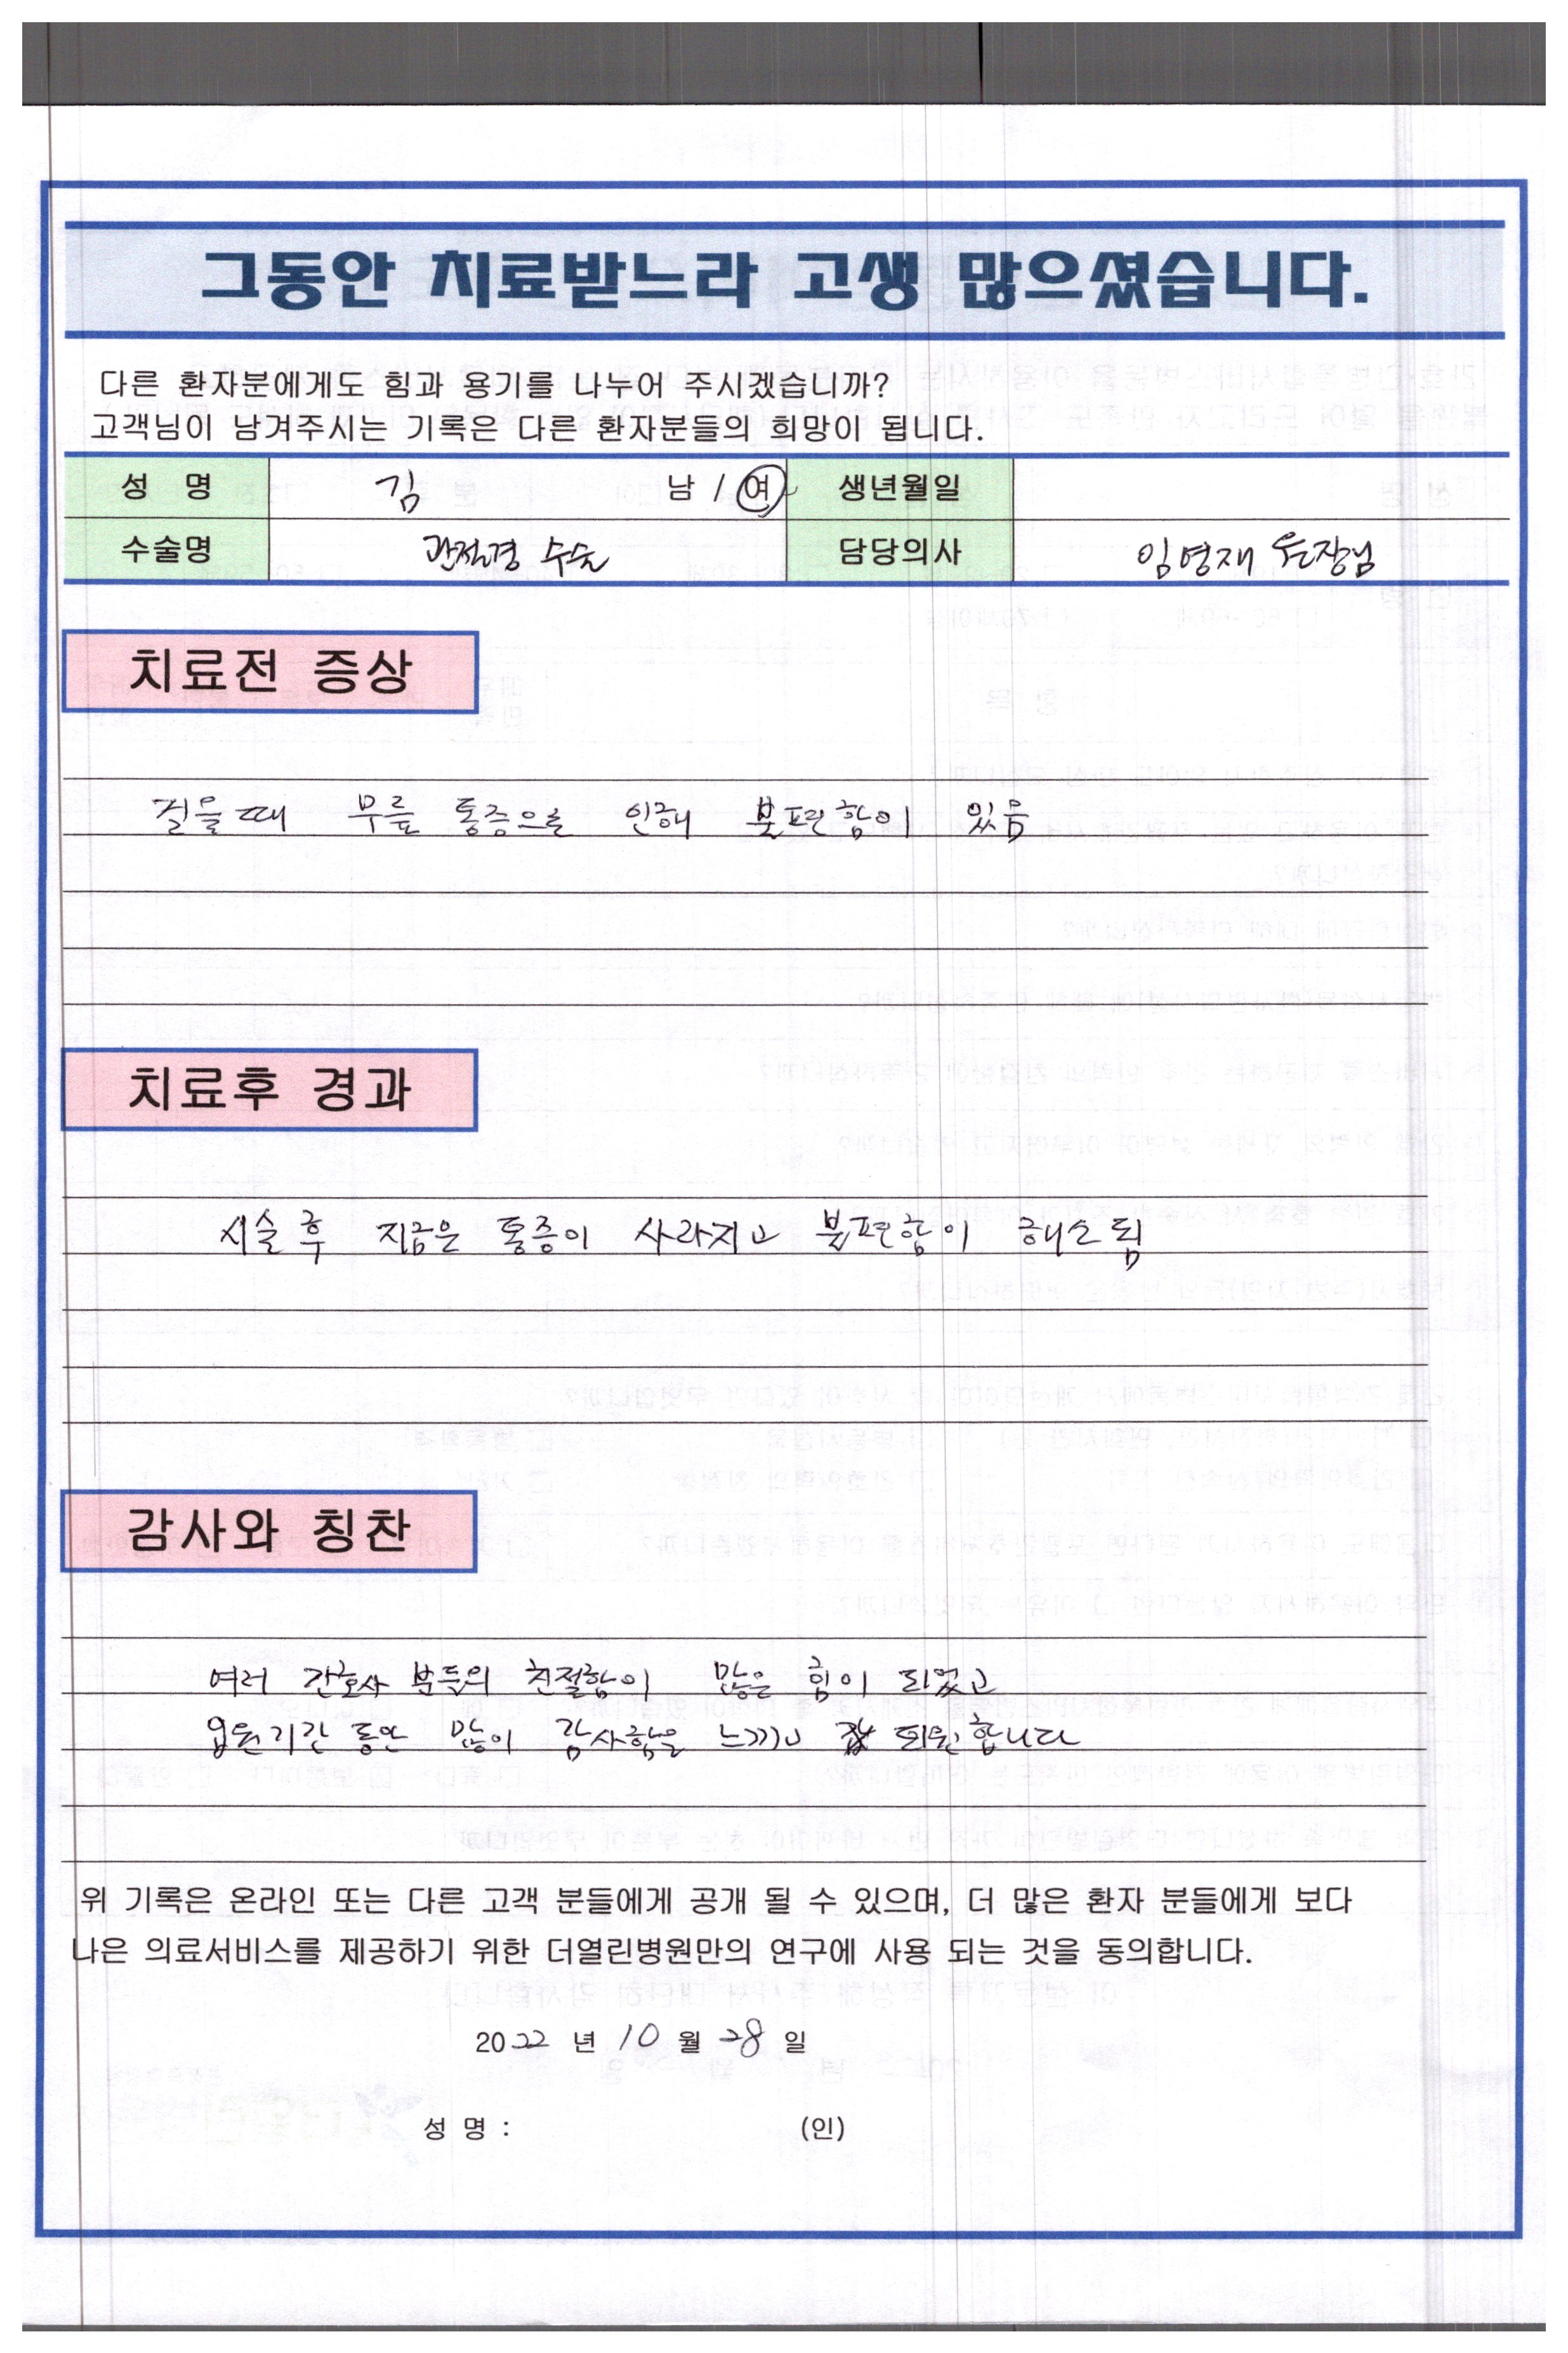 그동안 치료받느라 고생 많으셨습니다.
다른 환자분에게도 힘과 용기를 나누어 주시겠습니까?
고객님이 남겨주시는 기록은 다른 환자분들의 희망이 됩니다.
성 명 김 남 / 여 생년월일
수술명 관절경 수술 담당의사 임영재 원장님
치료전 증상
걸을때 무릎 통증으로 인해 불편함이 있음
치료후 경과
시술 후 지금은 통증이 사라지고 불편함이 해소됨
감사와 칭찬
여러 간호사 분들의 친절함이 많은 힘이 되었고
입원기간 동안 많이 감사함을 느끼고 퇴원합니다
위 기록은 온라인 또는 다른 고객 분들에게 공개 될 수 있으며, 더 많은 환자 분들에게 보다
나은 의료서비스를 제공하기 위한 더열린병원만의 연구에 사용 되는 것을 동의합니다.
2022 년 10 월 28 일
성 명 : (인)